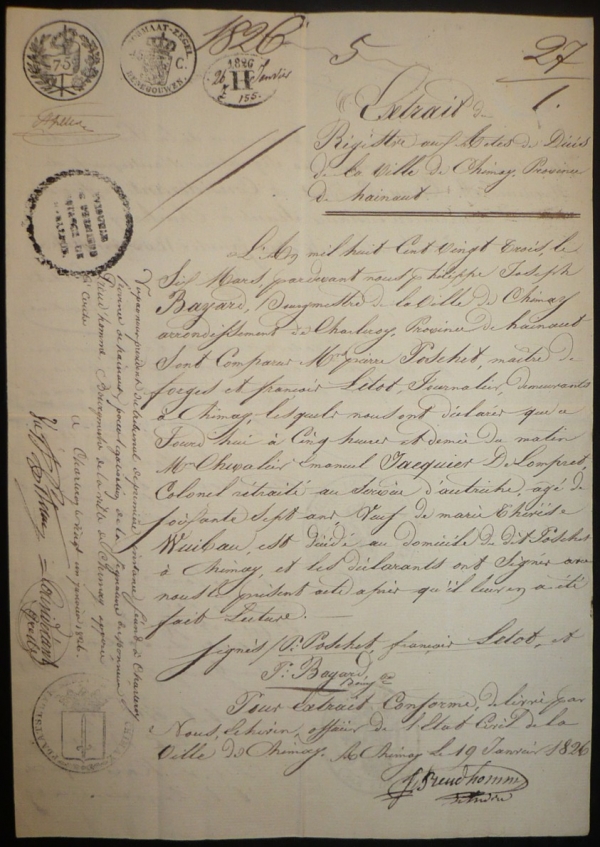 1826
5
27
1.
75
MAAT-ZEGEL
HENEGOUWEN
C.
1826
24 H Janvier
155.
Extrait du
Régistre aux Actes de Décès
de la Ville de Chimay, Province
de hainaut
L'An mil huit Cent Vingt trois, le
Six Mars, pardevant nous, philippe Joseph
Bayard, Bourgmestre de la Ville de Chimay
arrondissement de Charleroy, Province de hainaut
Sont Comparus Mrs pierre Poschet, maître de
forges et françois Letot, Journalier, demeurants
à Chimay, lesquels nous ont déclaré que
Jourd'hui à Cinq heures et demie du matin
Mr Chevalier Emanuel Jacquier De Lompret,
Colonel rétraité au Service d'autriche, agé de
soixante sept ans Veuf de marie thérèse
Wuibau, est décédé au domicile du dit Poschet
à Chimay, et les déclarants ont Signés avec
nous le présent acte après qu'il leur en a été
fait Lecture.
Signés P. Poschet, françois Letot, et
P. J. Bayard
Pour Extrait Conforme, délivré par
Nous, Echevin, officier de l'Etat Civil de la
Ville de Chimay. A Chimay Le 19 Janvier 1826
Preud'homme
Echevin
Vu par nous président du tribunal de première instance séant à Charleroy
Province de hainaut, pour légalisation de la Signature de Monsieur
Preud'homme de la ville de Chimay apposée
à Charleroy le vingt un janvier 1826.
Président